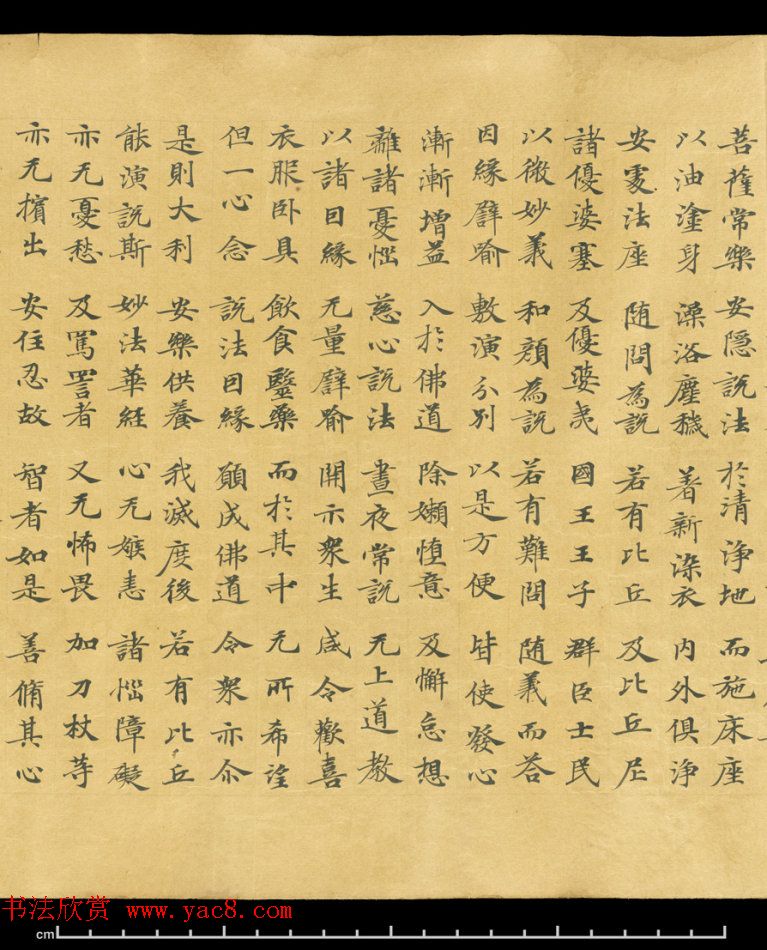 菩薩常樂 安隱說法 於清淨地 而施床座
以油塗身 澡浴塵穢 著新染衣 內外俱淨
安處法座 随問為說 若有比丘 及比丘尼
諸優婆塞 及優婆夷 國王王子 群臣士民
以微妙義 和顏為說 若有難問 随義而荅
因緣譬喻 敷演分別 以是方便 皆使發心
漸漸增益 入於佛道 除嬾惰意 及懈怠想
離諸憂惱 慈心說法 晝夜常說 无上道教
以諸因緣 无量譬喻 開示衆生 咸令歡喜
衣服卧具 飲食醫藥 而於其中 无所希望
但一心念 說法因緣 願成佛道 令衆亦尒
是則大利 安樂供養 我滅度後 若有比丘
能演說斯 妙法華經 心无嫉恚 諸惱障礙
亦无憂愁 及罵詈者 又无怖畏 加刀杖等
亦无擯出 安住忍故 智者如是 善脩其心
书法欣赏 www.yac8.com
cm